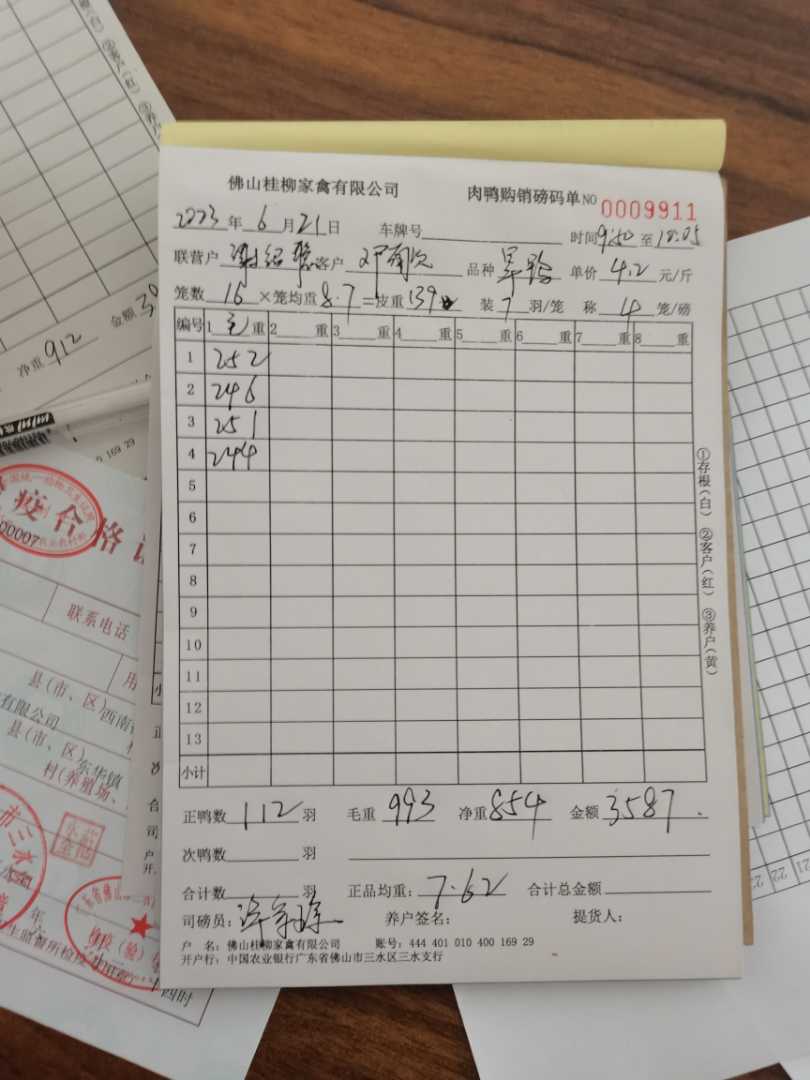 佛山桂柳家禽有限公司 肉鸭购销磅码单NO 0009911
2023年6月21日 车牌号 时间9:50至10:05
联营户 客户 品种 单价4.2元/斤
笼数16×笼均重8.7=皮重139 装7羽/笼 称4笼/磅
编号 1毛重 2重 3重 4重 5重 6重 7重 8重
1 252
2 246
3 251
4 244
5
6
7
8
9
10
11
12
13
小计
①存根(白) ②客户(红) ③养户(黄)
正鸭数112羽 毛重993 净重854 金额3587.
次鸭数 羽
合计数 羽 正品均重:7.62 合计总金额
司磅员: 养户签名: 提货人:
户 名:佛山桂柳家禽有限公司 账号:444 401 010 400 169 29
开户行:中国农业银行广东省佛山市三水区三水支行
净重912 金额
169 29
疫合格
00007
联系电话
用
县(市、区)西南
有限公司
县(市、区)东华镇
村(养殖场、
年
生监督所检疫